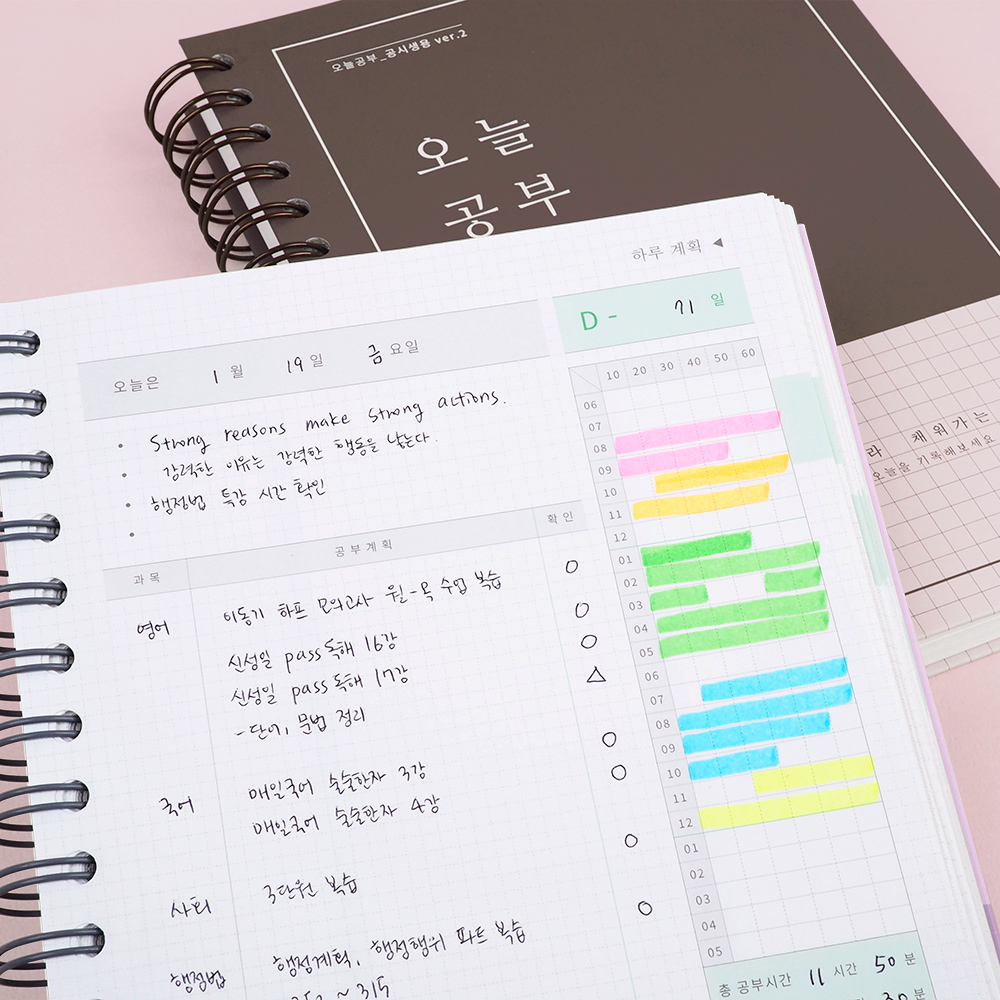 오늘공부_공시생용 ver.2
오늘
공부
라 채워가는
오늘을 기록해보세요
하루 계획 ◀
D - 71 일
오늘은 1 월 19 일 금 요일
• Strong reasons make strong actions.
• 강력한 이유는 강력한 행동을 낳는다.
• 행정법 특강 시간 확인
•
과목 공부계획 확인
영어 이동기 하프 모의고사 월-목 수업 복습 ○
신성일 pass 독해 16강 ○
신성일 pass 독해 17강 ○
- 단어, 문법 정리 △
국어 매일국어 술술한자 3강 ○
매일국어 술술한자 4강 ○
사회 3단원 복습 ○
행정법 행정계획, 행정행위 파트 복습 ○
~ 315
10 20 30 40 50 60
06
07
08
09
10
11
12
01
02
03
04
05
06
07
08
09
10
11
12
01
02
03
04
05
총 공부시간 11 시간 50 분
30 분